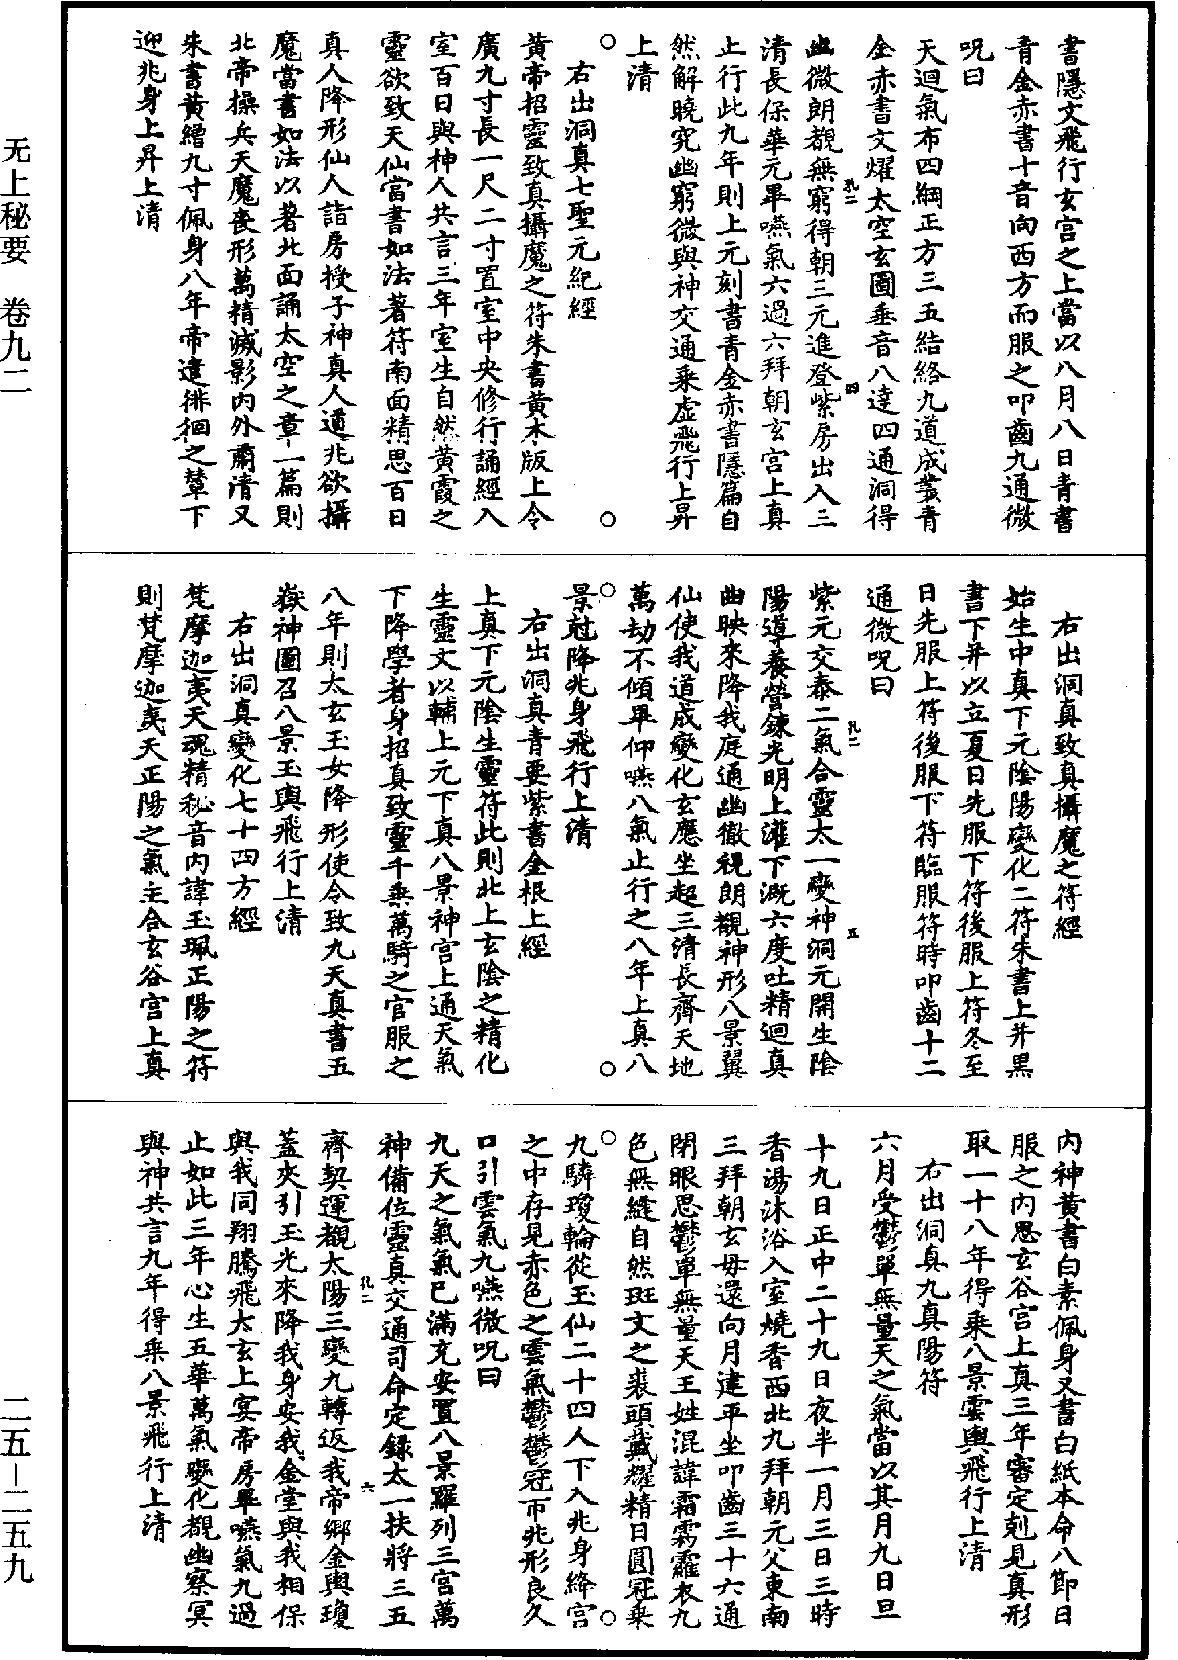 无上秘要 卷九二
書隱文飛行玄宮之上當以八月八日青書
青金赤書十音向西方而服之叩齒九通微
呪曰
天迴氣布四綱正方三五結絡九道成叢青
金赤書文燿太空玄圖垂音八達四通洞得
幽微朗覩無窮得朝三元進登紫房出入三
清長保華元畢嚥氣六過六拜朝玄宮上真
止行此九年則上元刻書青金赤書隱篇自
然解曉究幽窮微與神交通乘虛飛行上昇
上清
右出洞真七聖元紀經
黃帝招靈致真攝魔之符朱書黃木版上令
廣九寸長一尺二寸置室中央修行誦經入
室百日與神人共言三年室生自然黃霞之
靈欲致天仙當書如法著符南面精思百日
真人降形仙人詣房授子神真人道兆欲攝
魔當書如法以著北面誦太空之章一篇則
北帝操兵天魔喪形萬精滅影內外肅清又
朱書黃繒九寸佩身八年帝遣徘徊之輦下
迎兆身上昇上清
右出洞真致真攝魔之符經
始生中真下元陰陽變化二符朱書上并黑
書下并以立夏日先服下符後服上符冬至
日先服上符後服下符臨服符時叩齒十二
通微呪曰
紫元交泰二氣合靈太一變神洞元開生陰
陽導養營鍊光明上灌下溉六度吐精迴真
曲映來降我庭通幽徹視朗觀神形八景翼
仙使我道成變化玄應坐超三清長齊天地
萬劫不傾畢仰嚥八氣止行之八年上真八
景尅降兆身飛行上清
右出洞真青要紫書金根上經
上真下元陰生靈符此則北上玄陰之精化
生靈文以輔上元下真八景神宮上通天氣
下降學者身招真致靈千乘萬騎之官服之
八年則太玄玉女降形使令致九天真書五
嶽神圖召八景玉輿飛行上清
右出洞真變化七十四方經
梵摩迦夷天魂精秘音內諱玉珮正陽之符
則梵摩迦夷天正陽之氣主合玄谷宮上真
內神黃書白素佩身又書白紙本命八節日
服之內思玄谷宮上真三年審定剋見真形
取一十八年得乘八景雲輿飛行上清
右出洞真九真陽符
六月受鬱單無量天之氣當以其月九日旦
十九日正中二十九日夜半一月三日三時
香湯沐浴入室燒香西北九拜朝元父東南
三拜朝玄母還向月建平坐叩齒三十六通
閉眼思鬱單無量天王姓混諱霜霧靃衣九
色無縫自然斑文之裘頭戴耀精日圓冠乘
九驎瓊輪從玉仙二十四人下入兆身絳宮
之中存見赤色之雲氣鬱鬱冠帀兆形良久
口引雲氣九嚥微呪曰
九天之氣氣已滿充安置八景羅列三宮萬
神備位靈真交通司命定錄太一扶將三五
齊契運觀太陽三變九轉返我帝鄉金輿瓊
蓋夾引玉光來降我身安我金堂與我相保
與我同翔騰飛大玄上宴帝房畢嚥氣九過
止如此三年心生五華萬氣變化覩幽察冥
與神共言九年得乘八景飛行上清
孔二
四
孔二
五
孔二
六
二五－二五九